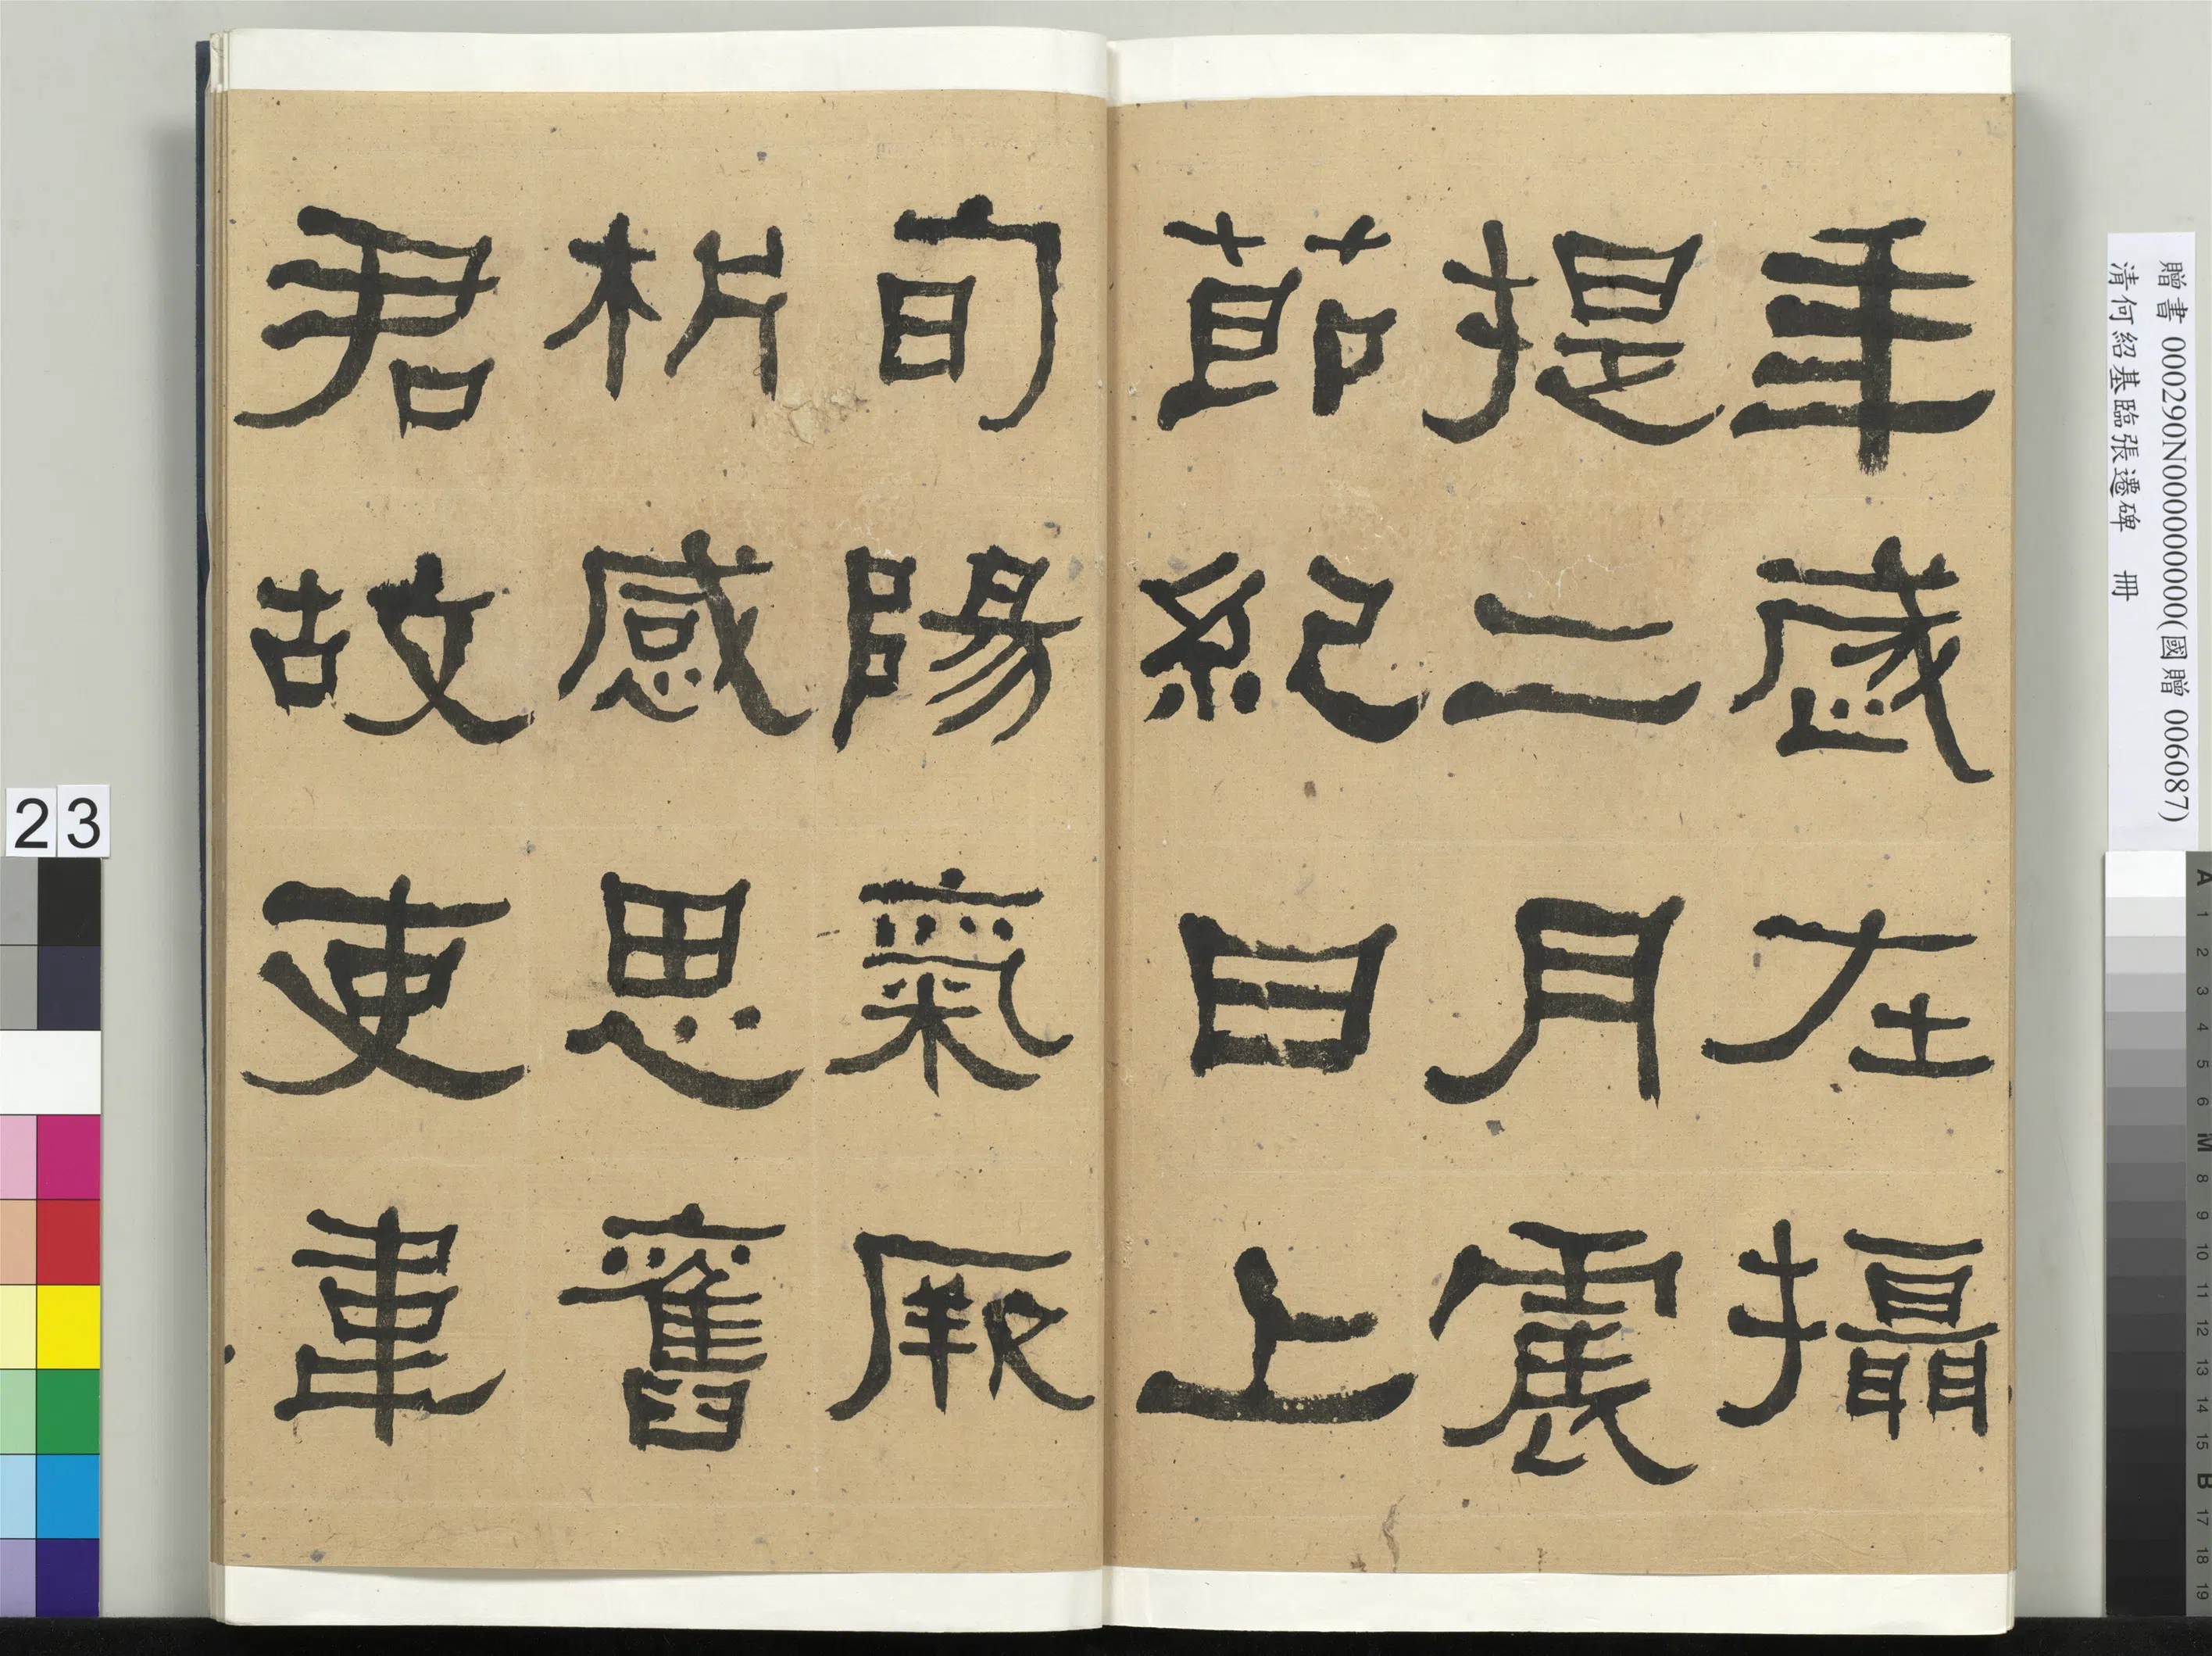 年歲在攝
提二月震
節紀日上
旬陽氣厥
析感思舊
君故吏韋
贈書 000290N000000000(國贈 006087)
清何紹基臨張遷碑 冊
23
A 1 2 3 4 5 6 M 8 9 10 11 12 13 14 15 B 17 18 19